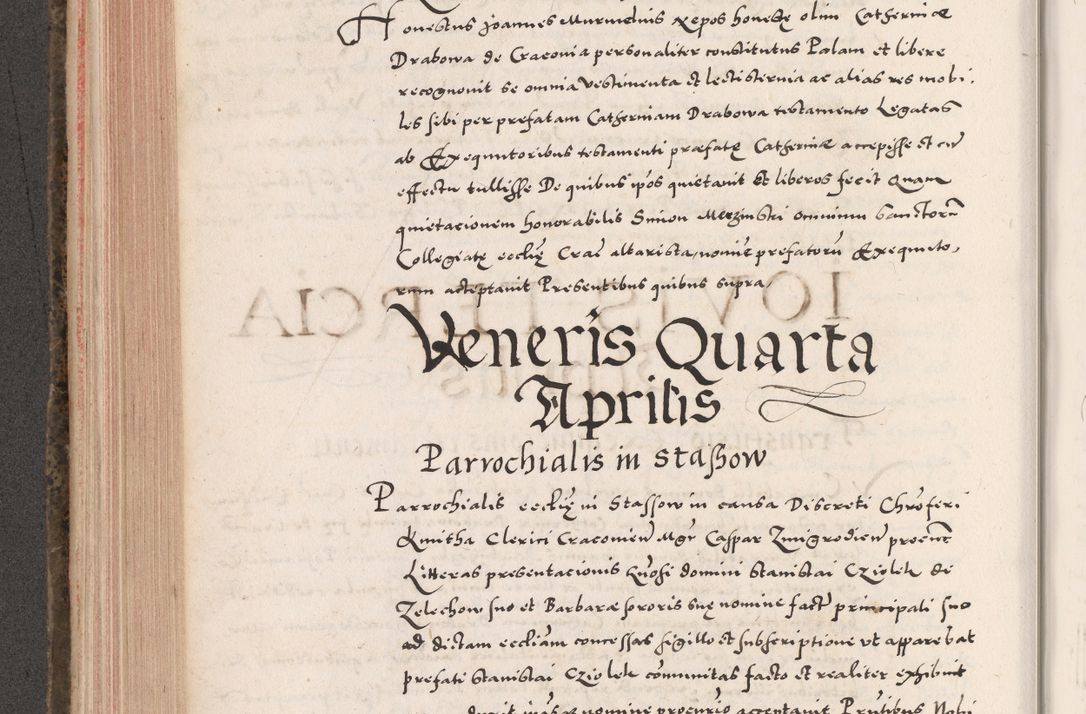 Honestus Joannes Murmelius Nepos honestę olim Catherinæ
Drabowa de Cracovia personaliter constitutus Palam et libere
recognovit se omnia vestimenta et lectisternia ac alias res mobi-
les sibi per prefatam Catherinam Drabowa testamento Legatas
ab Exequutoribus testamenti præfatę Catherinæ accepisse et cū
effectu tullisse De quibus ip̄os quietavit Et liberos fecit Quam
quietacionem honorabilis Simon omnium Sanctorū
Collegiatę eccl̄ię Crac̄ altarista, nomīe prefatorū Exequuto-
rum acceptavit Presentibus quibus supra
Veneris Quarta
Aprilis
Parrochialis in Staßow
Parrochialis eccl̄ię in Stassow in causa Discreti Chrōferi
Kmitha Clerici Cracovien̄ Mgr̄ Caspar Zmigrodien̄
Litteras presentacionis gn̄osi domini Stanislai Cziolek de
Zelechow suo et Barbaræ sororis suę nomine fact principali suo
ad dictam eccl̄iam concessas sigillo et subscriptione ut apparebat
prefati Stanislai Cziolek com̄unitas facto et realiter exhibuit
nomine procur̄io acceptavit Pr̄ntibus Nobi